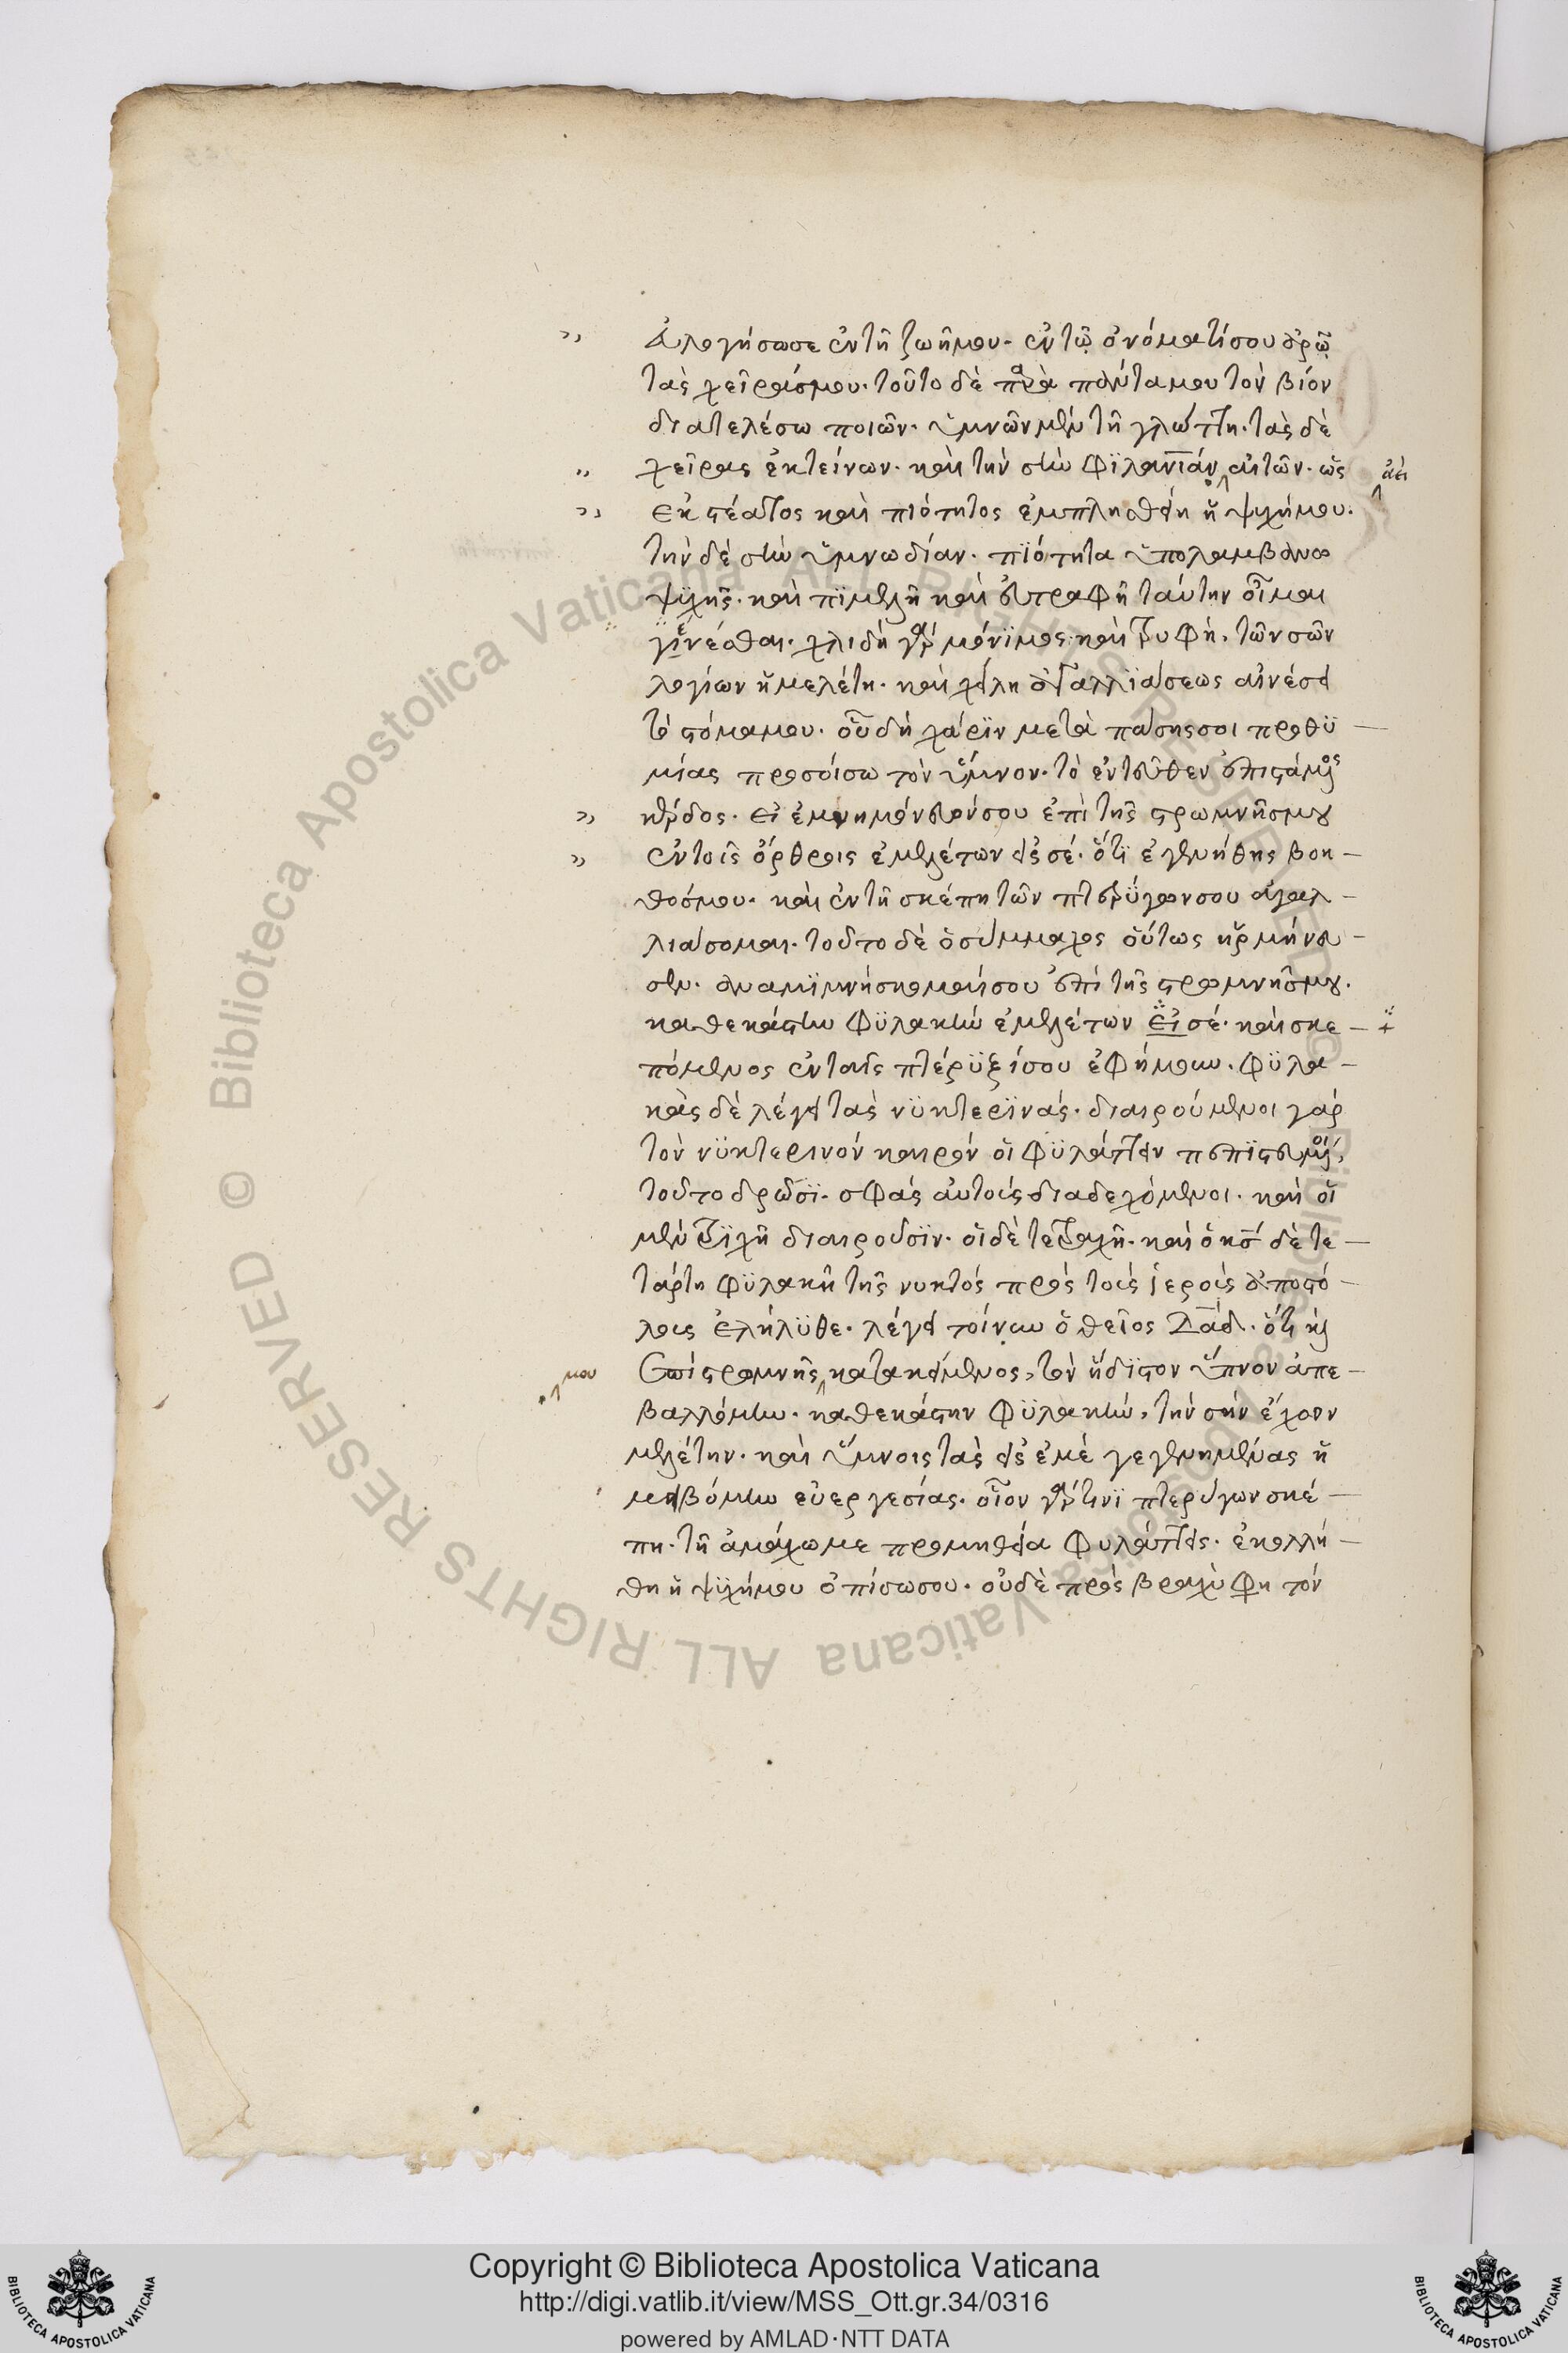 εὐλογήσω σε ἐν τῆ ζωῆ μου. ἐν τῶ ὀνόματί σου ἀρῶ
τὰς χεῖράς μου. τοῦτο δὲ παρὰ πάντα μου τὸν βίον
διατελέσω ποιῶν. ὑμνῶν μὲν τῆ γλώττη. τὰς δὲ
χεῖρας ἐκτείνων. καὶ τὴν σὴν φϊλανίαν αἰτῶν. ὡς
ἀεὶ
ἐκ στέατος καὶ πιότητος ἐμπλησθείη ἡ ψυχή μου.
τὴν δὲ σὴν ὑμνωδίαν. πϊότητα ὑπολαμβάνω
ψϋχῆς. καὶ πϊμελῆ καὶ εὐτραφῆ ταύτην οἶμαι
γίνεσθαι. χλιδὴ γὰρ μόνϊμος καὶ τρυφὴ. τῶν σῶν
λογίων ἡ μελέτη. καὶ χείλη ἀγαλλϊάσεως αἰνέσει
τὸ στόμα μου. οὗ δὴ χάρϊν μετὰ πάσης σοι προθϋ
μίας προσοίσω τὸν ὕμνον. τὸ ἐντεῦθεν ἐπιστάμενος
κέρδος. εἰ ἐμνημόνευόν σου ἐπὶ τῆς στρωμνῆς μου
ἐν τοῖς ὄρθροις ἐμελέτων εἰς σέ. ὅτϊ ἐγενήθης βοη
θός μου. καὶ ἐν τῆ σκέπη τῶν πτερύγων σου ἀγαλ
λιάσομαι. τοῦτο δὲ ὁ σύμμαχος οὕτως ἡρμήνευ
σεν. ἀναμϊμνήσκομαί σου ἐπὶ τῆς στρωμνῆς μου.
καθεκάστην φϋλακὴν ἐμελέτων εἰ σέ. καὶ σκε
πόμενος ἐν ταῖς πτέρϋξί σου εὐφήμουν. φϋλα
κὰς δὲ λέγει τὰς νϋκτερϊνάς. διαιρούμενοι γὰρ
τὸν νϋκτερινὸν καιρὸν οἱ φϋλάττειν πεπϊστευμένοι,
τοῦτο δρῶσϊ. σφᾶς αὐτοὺς διαδεχόμενοι. καὶ οἱ
μὲν τρϊχῆ διαιροῦσϊν. οἱ δὲ τετραχῆ. καὶ ὁ κς δὲ τε
τάρτη φϋλακῆ τῆς νυκτὸς πρὸς τοὺς ἱεροὺς ἀποστό
λους ἐλήλϋθε. λέγει τοίνυν ὁ θεῖος Δαδ. ὅτι καὶ
μου
ἐπὶ στρωμνῆς κατακείμενος, τὸν ἥδϊστον ὕπνον ἀπε
βαλλόμην. καθεκάστην φϋλακὴν, τὴν σὴν ἔχων
μελέτην. καὶ ὕμνοις τὰς εἰς ἐμὲ γεγενημένας ἠ
μειβόμην εὐεργεσίας. οἷον γάρ τινϊ πτερύγων σκέ
πη. τῆ ἀμάχω με προμηθεία φυλάττεις. ἐκολλή
θη ἡ ψϋχή μου ὀπίσω σου. οὐδὲ πρὸς βραχύ φη τὸν
Copyright © Biblioteca Apostolica Vaticana
http://digi.vatlib.it/view/MSS_Ott.gr.34/0316
powered by AMLAD·NTT DATA